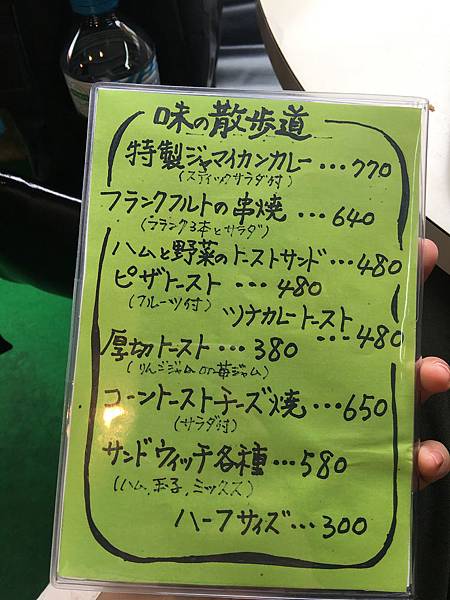 味の散歩道
特製ジャマイカンカレー…770
(スティックサラダ付)
フランクフルトの串焼…640
(フランク3本とサラダ)
ハムと野菜のトーストサンド…480
ピザトースト…480
(フルーツ付)
ツナカレートースト…480
厚切トースト…380
(りんごジャムor苺ジャム)
コーントーストチーズ焼…650
(サラダ付)
サンドウィッチ各種…580
(ハム,玉子,ミックス)
ハーフサイズ…300